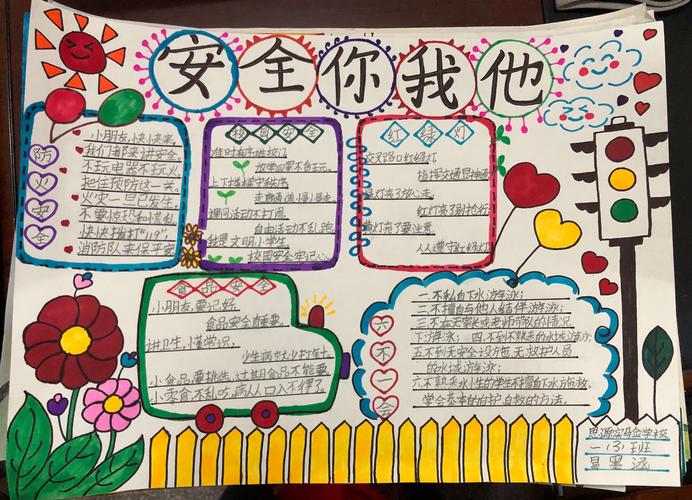 安全你我他
防火安全
小朋友，快快来，
我们都来讲安全。
不玩电器不玩火，
把住预防这一关。
火灾一旦已发生，
不要惊恐和慌乱，
快快拨打"119"，
消防队来保平安
校园安全
准时有序进校门，
放学回家不贪玩。
上下楼梯守秩序，
走廊通道慢慢走。
课间活动不打闹，
自由活动不乱跑。
我是文明小学生，
校园安全牢记心。
红绿灯
交叉路口红绿灯，
指挥交通显神通
绿灯亮了放心走，
红灯亮了别抢行
黄灯亮了要注意，
人人遵守红绿灯
食品安全
小朋友，要记好，
食品安全最重要。
讲卫生，懂常识，
少生病来少打针。
小食品，要挑选，过期食品不能要。
小零食，不乱吃，病从口入不得了。
六不一会
一、不私自下水游泳；
二、不擅自与他人结伴游泳；
三、不在无家长或老师带队的情况
下游泳；四、不到不熟悉的水域游泳；
五、不到无安全设施、无救护人员
的水域游泳；
六、不熟悉水性的学生不擅自下水施救。
学会基本的自护、自救的方法。
一（3）班
易墨涵